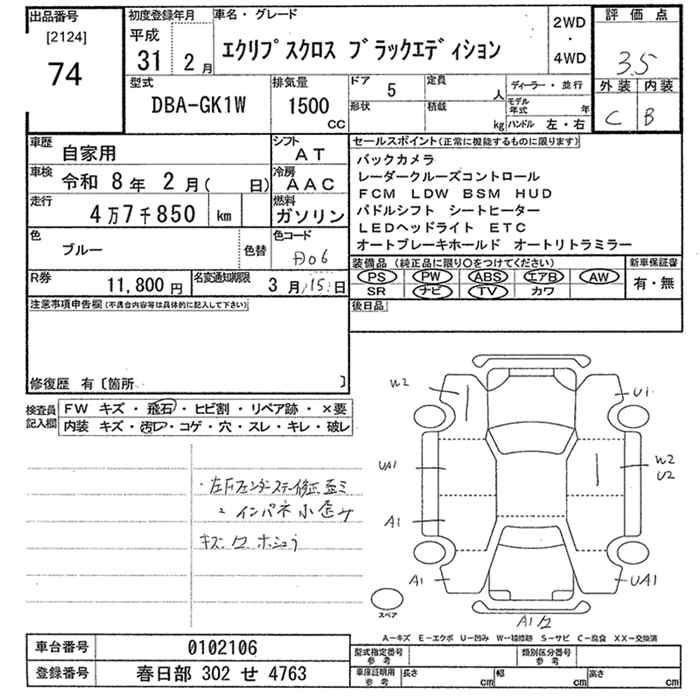 出品番号 初度登録年月 車名・グレード 評価点
[2124]
74
平成
31 2月
エクリプスクロス ブラックエディション
2WD
・
4WD
3.5
外装 内装
C B
型式 排気量 ドア 5 定員 人 ディーラー・並行
DBA-GK1W 1500 CC
形状 積載 kg モデル年式 年
ハンドル 左・右
車歴 自家用 シフト AT
車検 令和 8年 2月( 日) 冷房 AAC
走行 4万7千850 km 燃料 ガソリン
色 ブルー 色替 色コード D06
R券 11,800円 名変通知期限 3月15日
セールスポイント(正常に機能するものに限ります)
バックカメラ
レーダークルーズコントロール
FCM LDW BSM HUD
パドルシフト シートヒーター
LEDヘッドライト ETC
オートブレーキホールド オートリトラミラー
装備品(純正品に限り○をつけてください) 新車保証書
PS PW ABS エアB AW 有・無
SR ナビ TV カワ
後日品
注意事項申告欄(不具合内容等は具体的に記入して下さい)
修復歴 有〔箇所 〕
検査員記入欄
FW キズ・飛石・ヒビ割・リペア跡・×要
内装 キズ・汚レ・コゲ・穴・スレ・キレ・破レ
・左Fフェンダーステー修正歪ミ
〃 インパネ小歪み
キズ
W2 U1
UA1 W2
U2
A1
A1 UA1
A1
スペア
A-キズ E-エクボ U-凹み W-補修跡 S-サビ C-腐食 XX-交換済
車台番号 0102106
登録番号 春日部 302 せ 4763
型式指定番号 参考 類別区分番号 参考
車庫証明用 参考 長さ cm 幅 cm 高さ cm